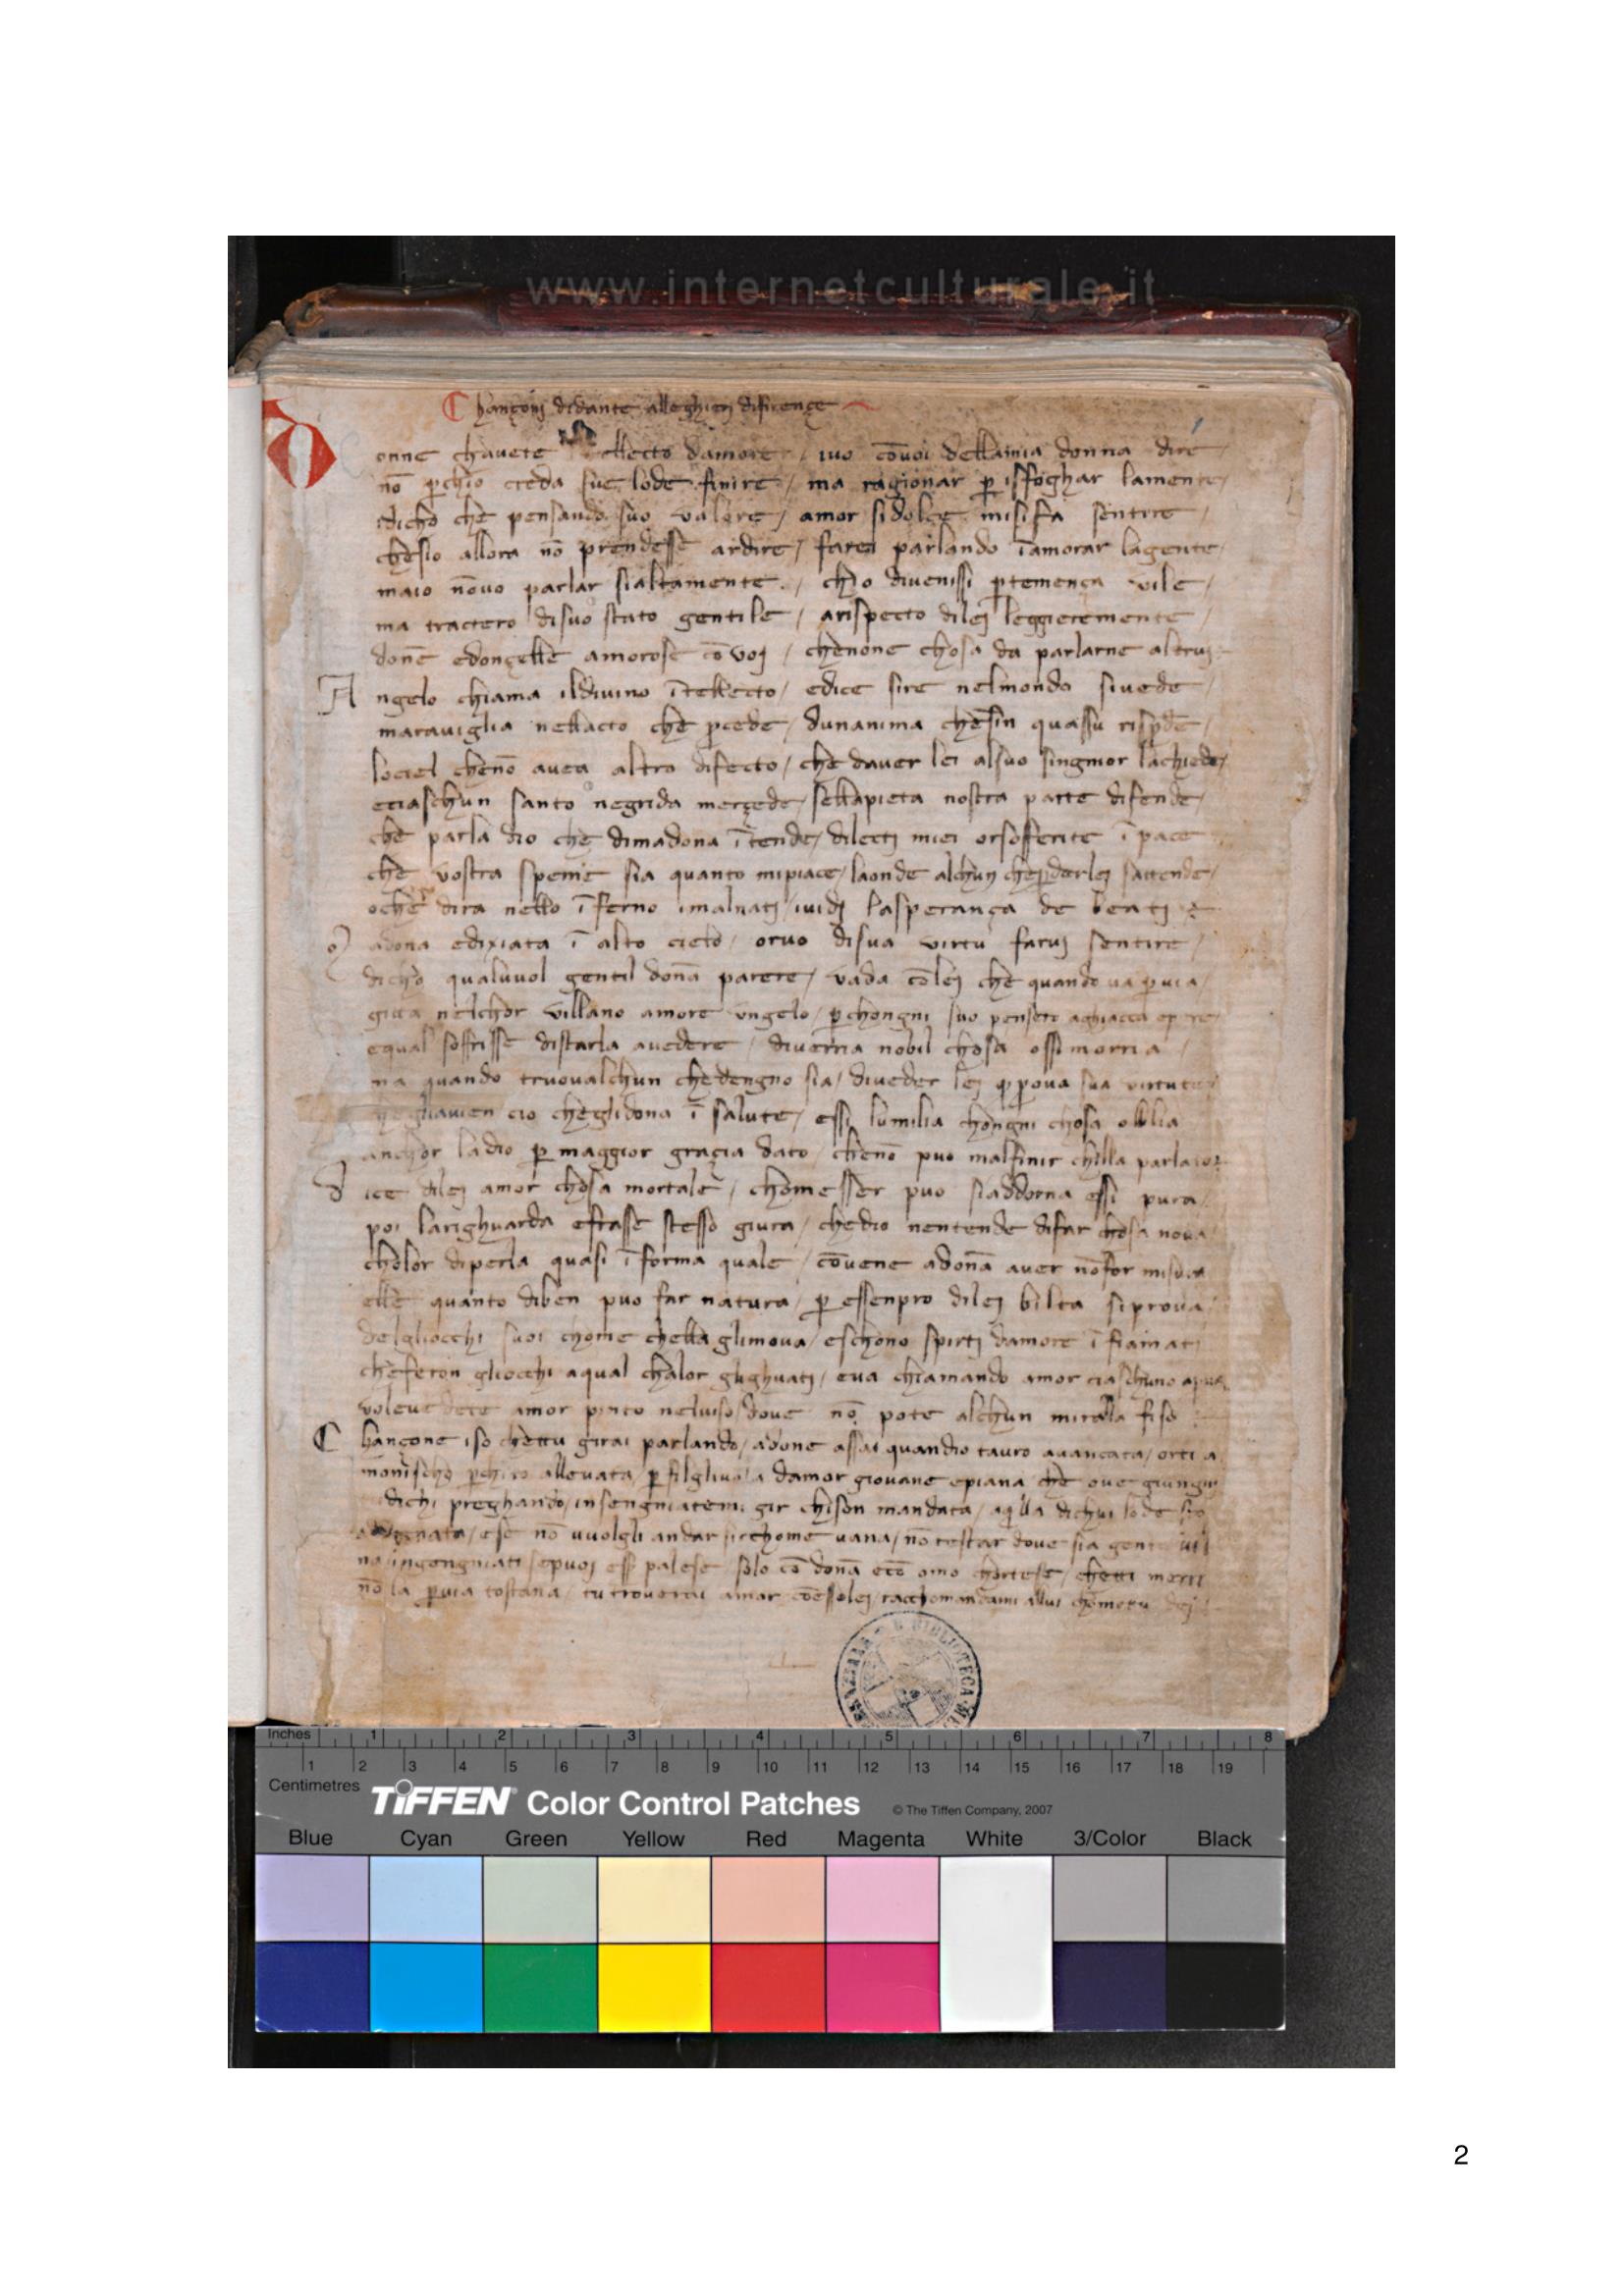 www.internetculturale.it
Chançonj didante alleghierj difirençe
Donne chavete ellecto damore / ivo cōvoi dellamia donna dire /
nō perchio creda sue lode finire / ma ragionar p isfoghar lamente /
dicho che pensando suo valore / amor sidolçe misifa sentire /
chesio allora nō prendesse ardire / farei parlando īamorar lagente /
maio nōvo parlar sialtamente / chio divenissi ptemença vile /
ma tractero disuo stato gentile / arispecto dilej leggieremente /
done edonçelle amorose cō voj / chenone chosa da parlarne altruj
Angelo chiama ildivino ītellecto / edice sire nelmondo sivede /
maraviglia nellacto che pcede / dunanima chesin quassu rispde /
lociel chenō avea altro difecto / che daver lei alsuo singnior lachiede /
eciaschun santo negrida merçede / sollapieta nostra parte difende /
che parla dio che dimadona ītende / dilectj miei orsofferite ī pace
che vostra speme sia quanto mipiace / laonde alchun chepderlej sattende /
oche dira nello īferno imalnatj / ividj lasperança de beatj
Madona edixiata ī alto cielo / orvo disua virtu farvj sentire /
dicho qualuvol gentil donā parere / vada cōlej che quando va p via /
gitta nelchor villano amore ungelo / pchongni suo pensero aghiaccia epere /
equal soffrisse distarla avedere / diverria nobil chosa ossi morria /
ma quando truovalchun chedengno sia / diveder lej qprova sua virtute
chegliavien cio cheglidona ī salute / essi lumilia chongni chosa oblia
anchor ladio p maggior graçia dato / chenō puo malfinir chilla parlato
Dice dilej amor chosa mortale / chomesser puo siaddorna essi pura /
poi larighuarda efrasse stesso giura / chedio nentende difar chosa nova /
cholor diperla quasi īforma quale / cōvene adonā aver nōfor misura
elle quanto diben puo far natura / p essenpro dilej bilta siprova /
delgliocchi suoi chome chella glimova / eschono spirtj damore īfiamati
cheferon gliocchi aqual chalor glighuatj / eva chiamando amor ciaschuno
volevedete amor pinto nelviso / dove nō pote alchun miralla fiso
Chançone iso chettu girai parlando / adone assai quandio tauro avancata / orti a
monischo pchi to allevata / p filgliuola damor giovane epiana che ove giungni
dichi preghando / insengniatemi gir chison mandata / aqlla dichui lode sto
adornata / ese nō vuolgli andar sicchome vana / nō restar dove sia gente vil
na ingengniati sepuoj esse palese solo cō donā ecō omo chortese / chetti merr
nō la p via tostana / tu troverai amor cōessolej / racchomandami allui chometu dej
BIBLIOTECA
Inches 1 2 3 4 5 6 7 8
Centimetres 1 2 3 4 5 6 7 8 9 10 11 12 13 14 15 16 17 18 19
TIFFEN Color Control Patches © The Tiffen Company, 2007
Blue Cyan Green Yellow Red Magenta White 3/Color Black
2